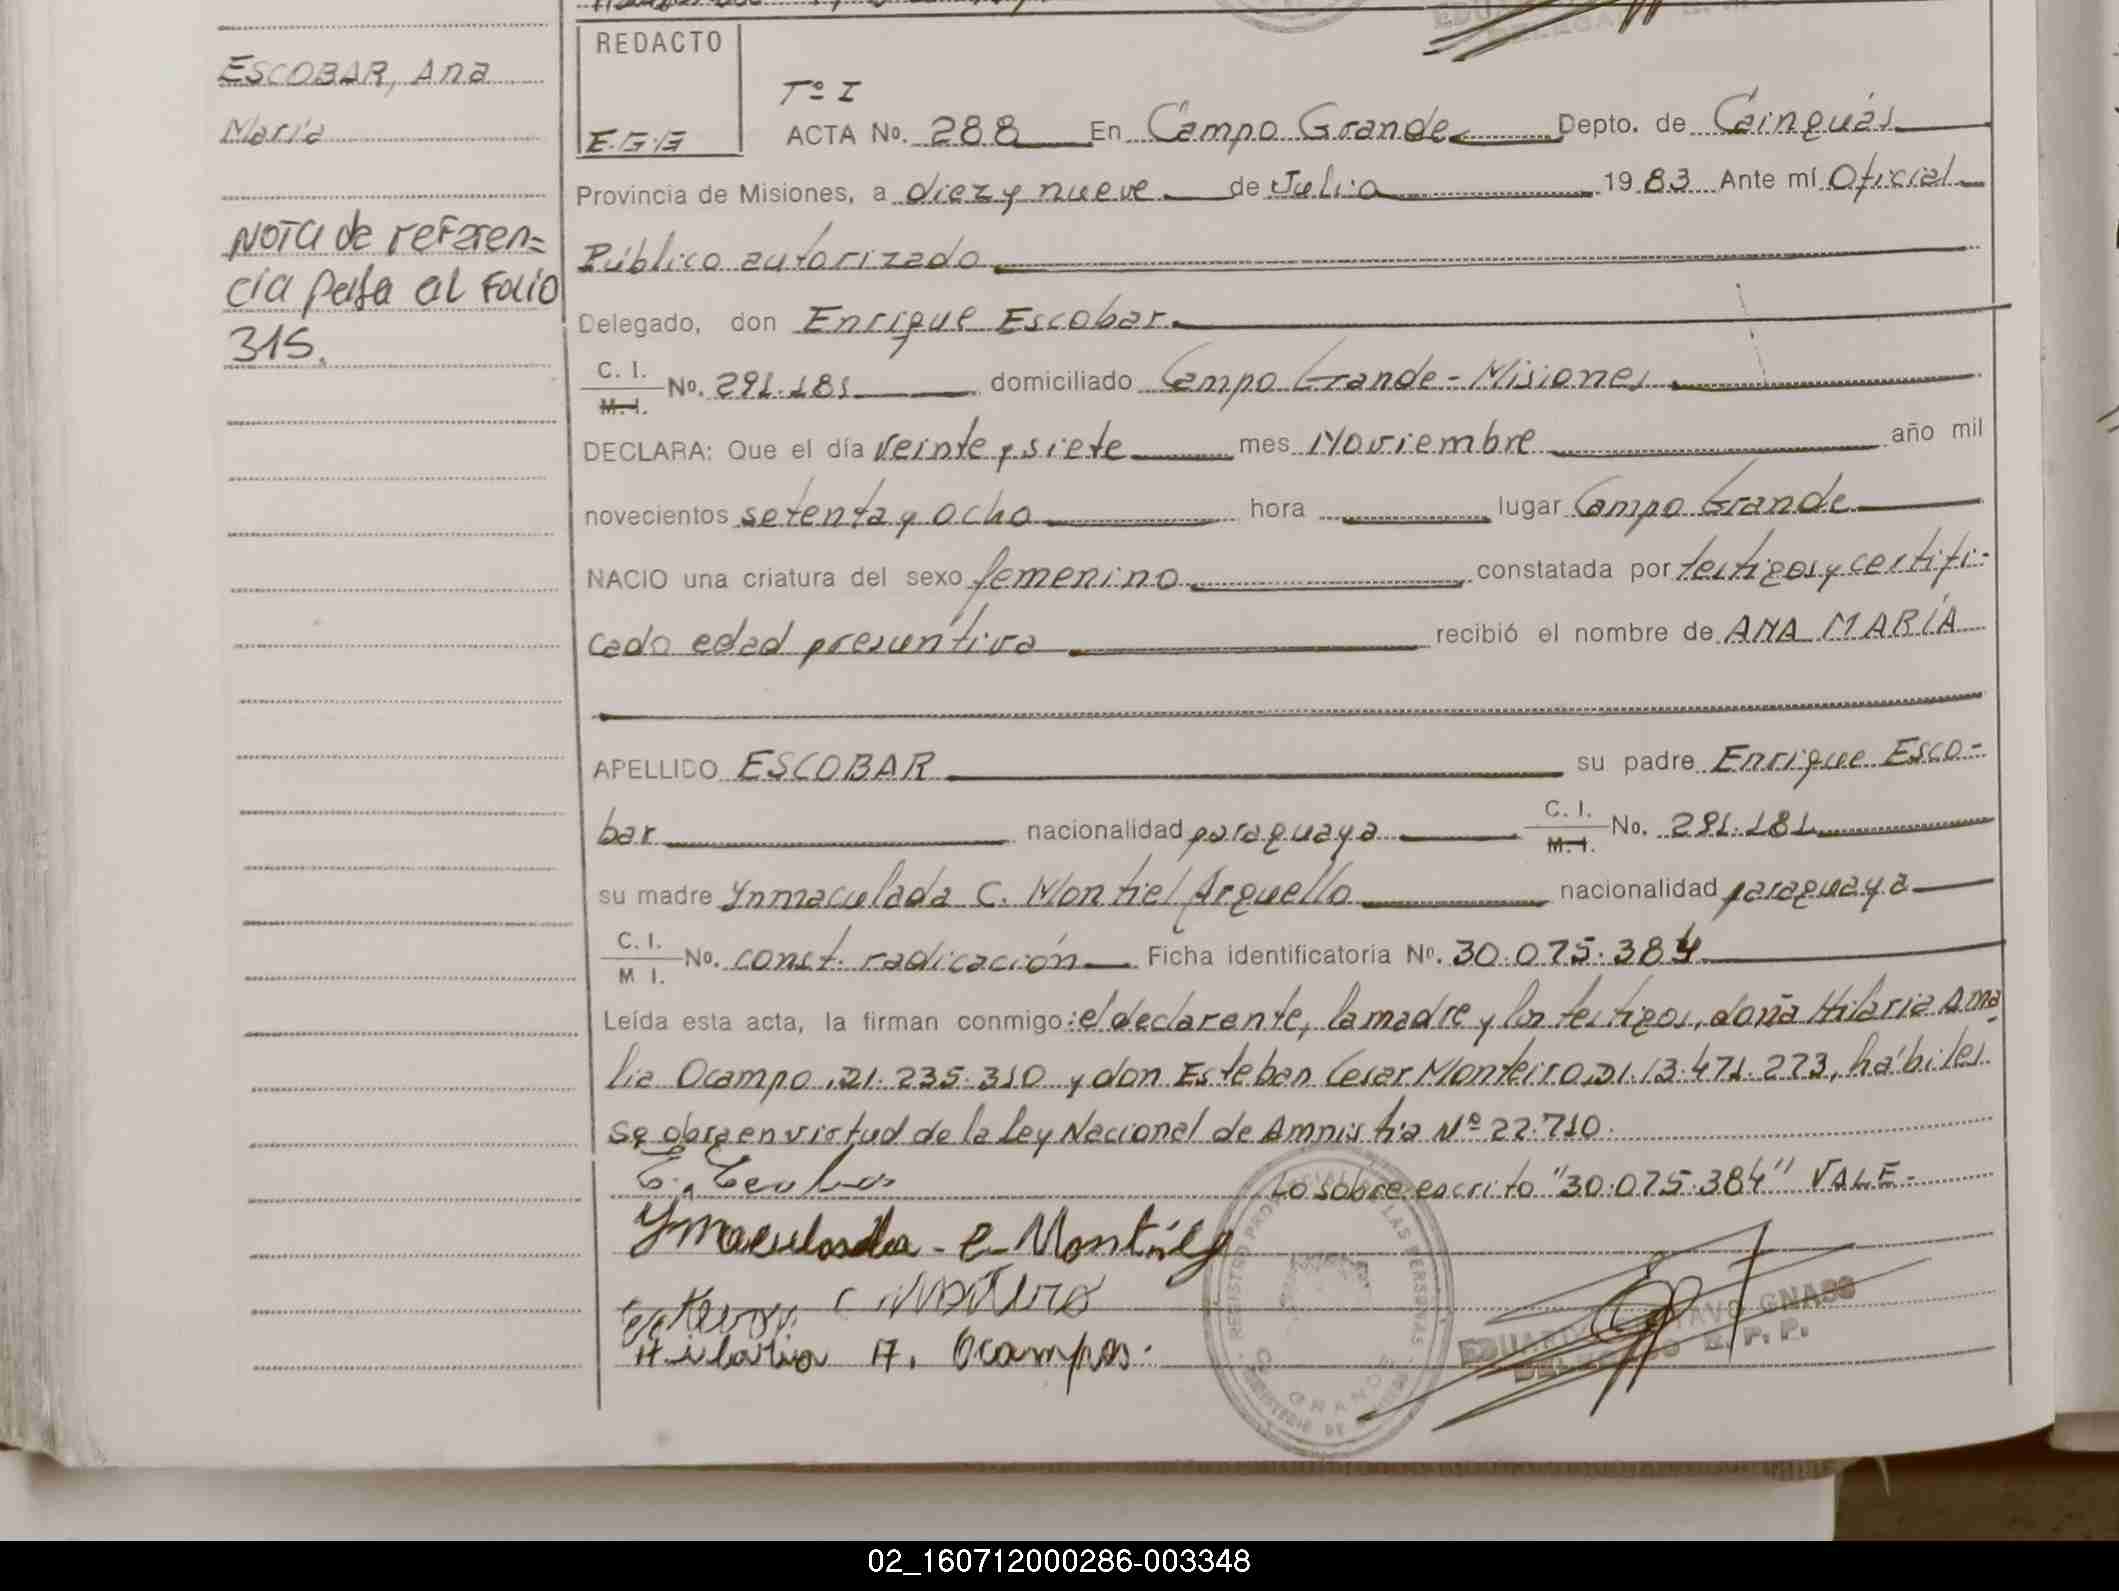 ESCOBAR, Ana
María
NOTA de referen=
cia pasa al Folio
315.
REDACTO
E.G.G
Tº I
ACTA No. 288 En Campo Grande Depto. de Cainguás
Provincia de Misiones, a diez y nueve de Julio 19 83 Ante mí Oficial
Público autorizado
Delegado, don Enrique Escobar
C. I.
M. I. No. 291.181 domiciliado Campo Grande - Misiones
DECLARA: Que el día veinte y siete mes Noviembre año mil
novecientos setenta y ocho hora lugar Campo Grande
NACIO una criatura del sexo femenino constatada por testigos y certifi-
cado edad presuntiva recibió el nombre de ANA MARÍA
APELLIDO ESCOBAR su padre Enrique Esco-
bar nacionalidad paraguaya C. I.
M. I. No. 291.181
su madre Ynmaculada C. Montiel Arguello nacionalidad paraguaya
C. I.
M I. No. const. radicación Ficha identificatoria No. 30.075.384
Leída esta acta, la firman conmigo: el declarante, la madre y los testigos, doña Hilaria Ama
lia Ocampo, DI. 235.310 y don Esteban Cesar Monteiro, DI. 13.471.273, hábiles.
Se obra en virtud de la Ley Nacional de Amnistia Nº 22.710.
Lo sobre escrito "30.075.384" VALE.-
Ymaculada - C - Montiel
Hilaria A. Ocampo.
REGISTRO PROVINCIAL DE LAS PERSONAS
CP. GRANDE
MINISTERIO DE GOBIERNO
EDUARDO GUSTAVO GNASS
DELEGADO R. P. P.
02_160712000286-003348